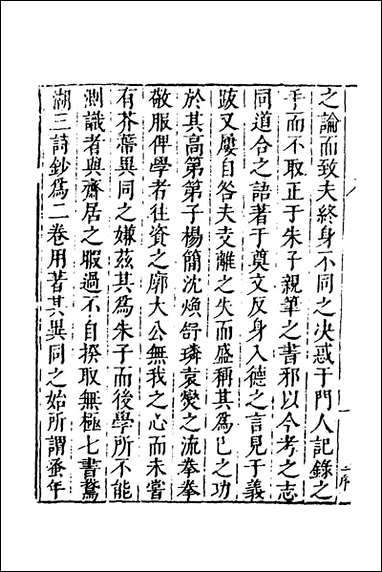 之論而致夫終身不同之决惑于門人記錄之
手而不取正于朱子親筆之書邪以今考之志
同道合之語著于奠文反身入德之言見于義
跋又屢自咎夫支離之失而盛稱其爲己之功
於其高第弟子楊簡沈煥舒璘袁爕之流拳拳
敬服俾學者往資之廓大公無我之心而未嘗
有芥蔕異同之嫌茲其爲朱子而後學所不能
測識者與齋居之暇過不自揆取無極七書鵞
湖三詩鈔爲二卷用著其異同之始所謂蚤年
序